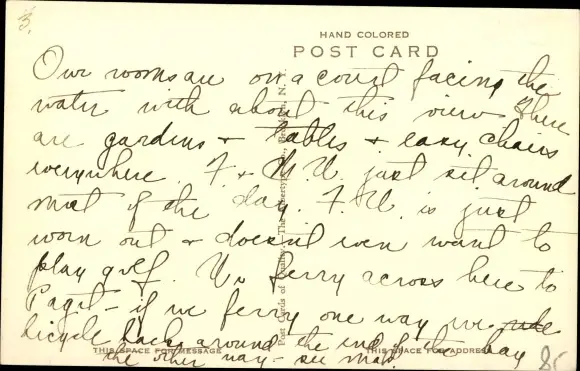 3.
HAND COLORED
POST CARD
Our rooms are on a court facing the
water with about this view. There
are gardens + tables + easy chairs
everywhere. F. + M. U. just sit around
most of the day. F. U. is just
worn out + doesn't even want to
play golf. We ferry across here to
Paget - if we ferry one way we ride
bicycle back around the end of the bay
the other way - see map.
THIS SPACE FOR MESSAGE
THIS SPACE FOR ADDRESS
Post Cards of Quality. - The Albertype Co., Brooklyn, N. Y.
85